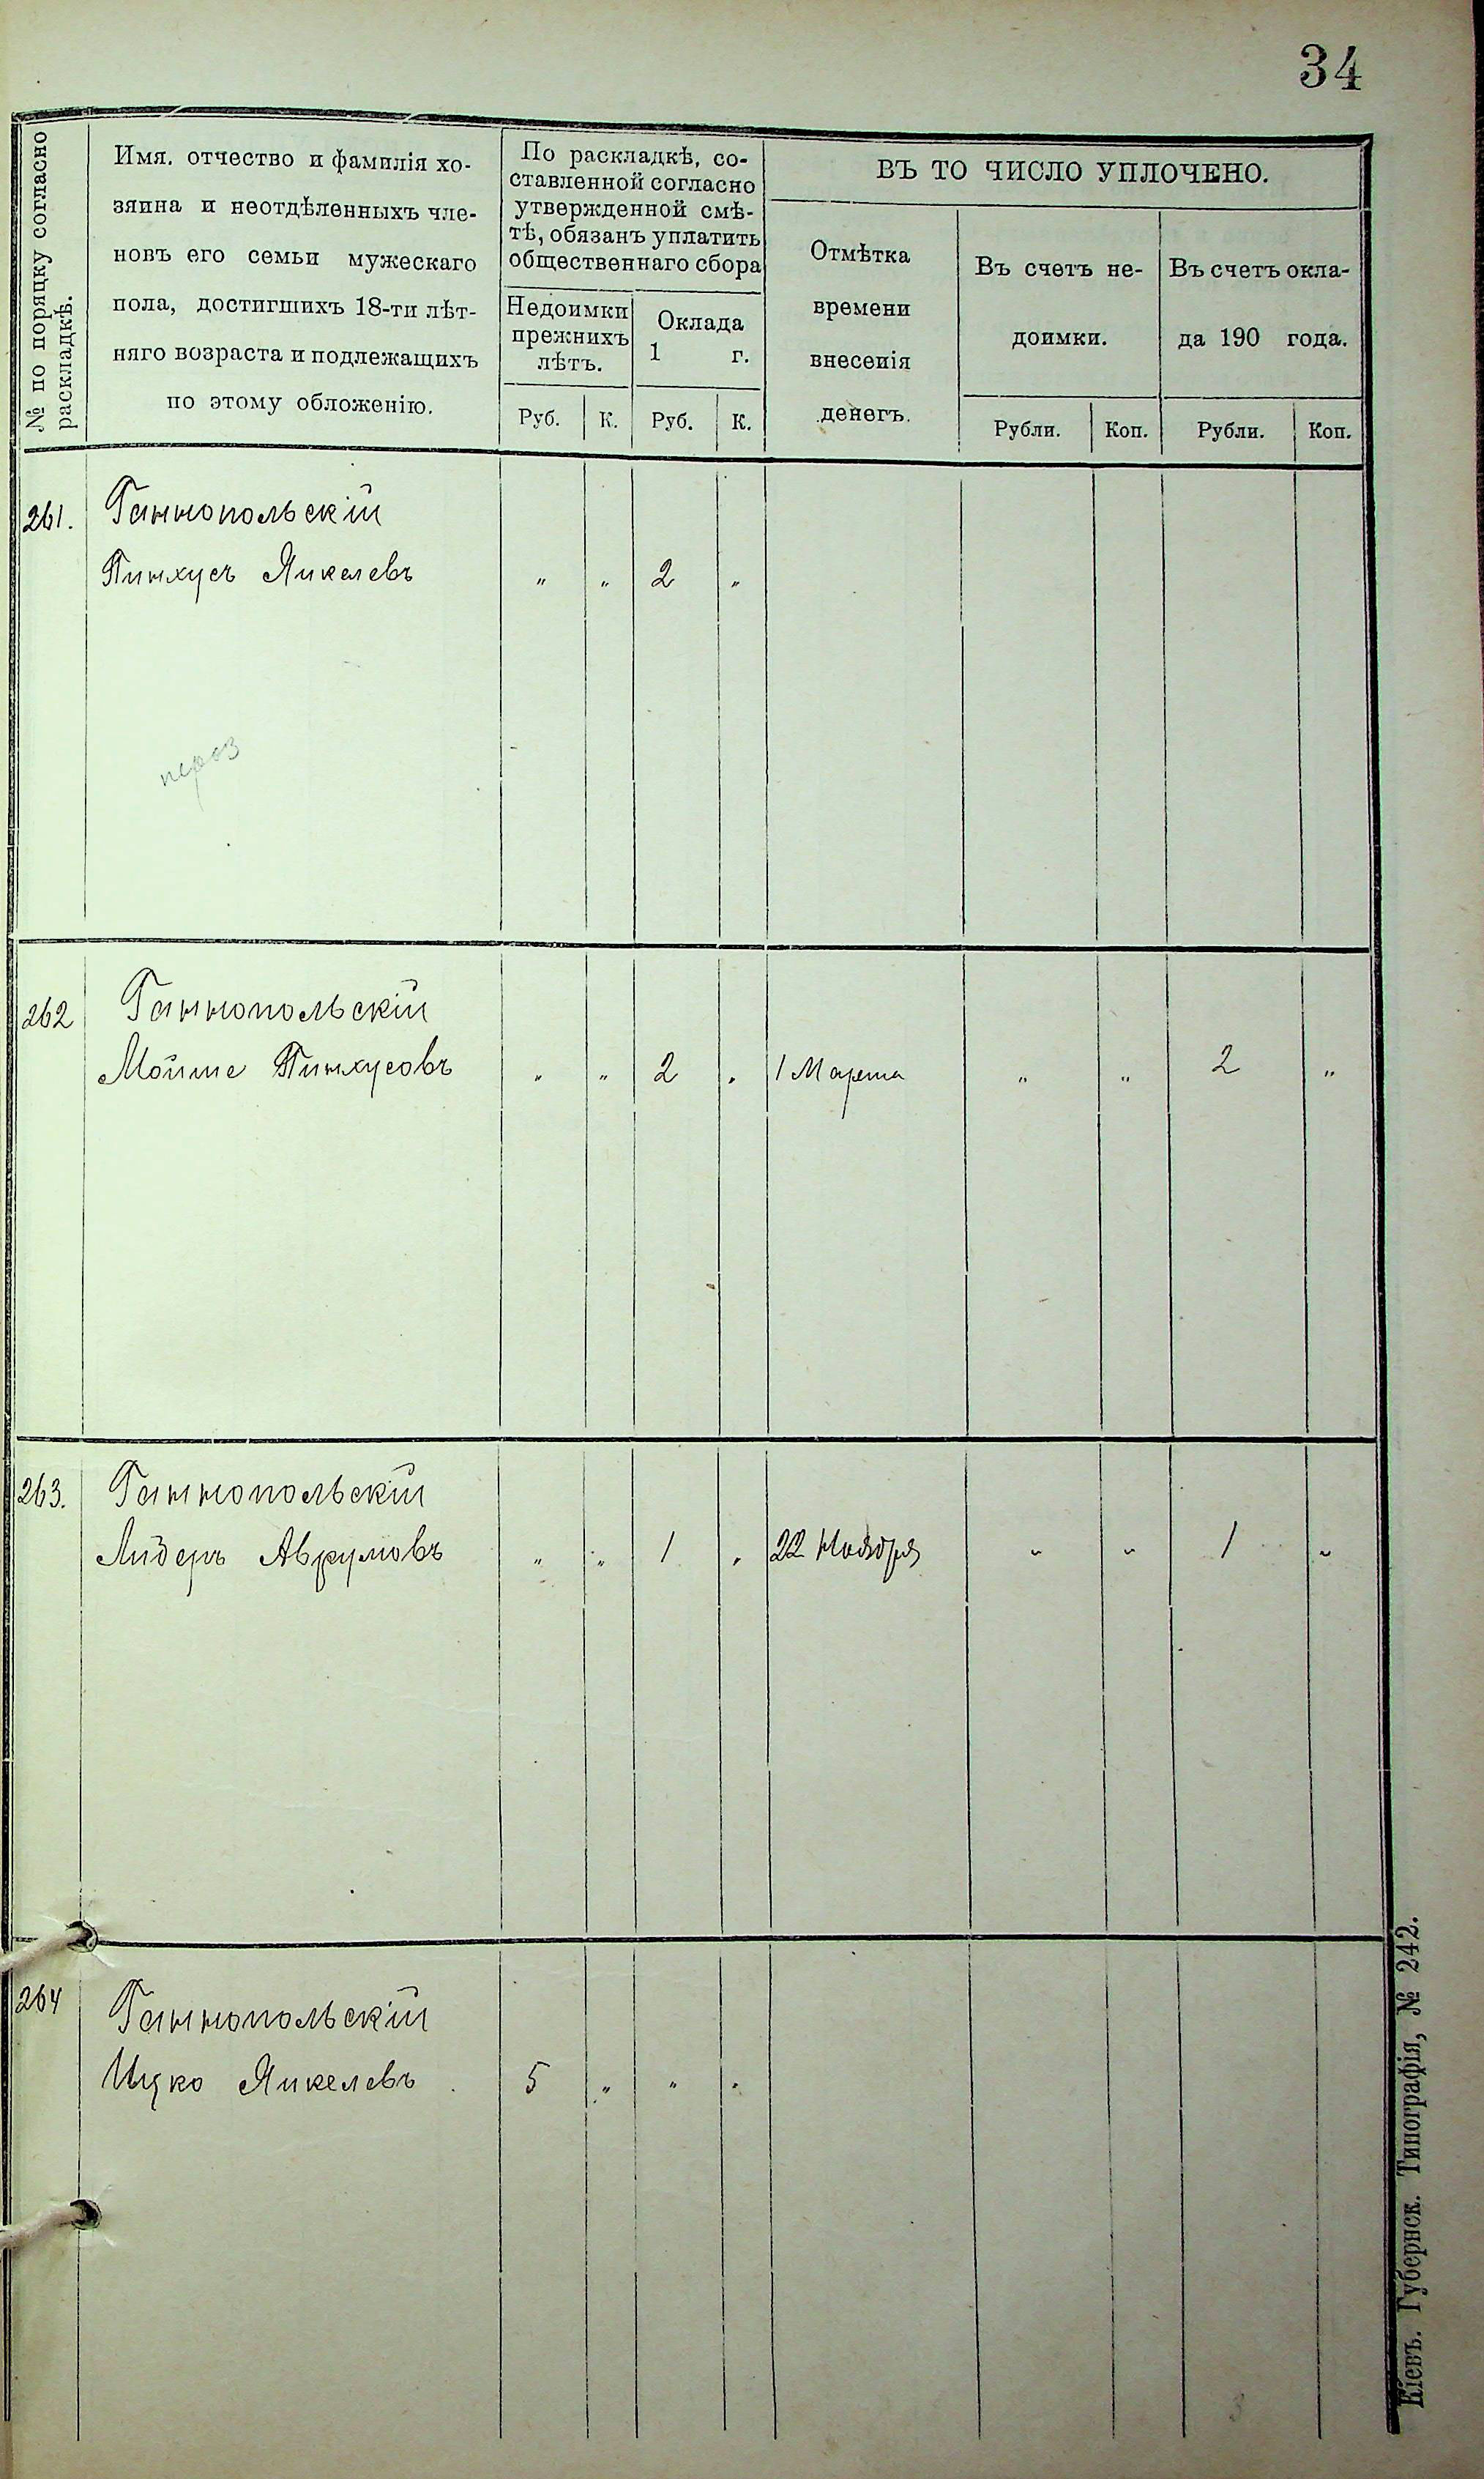 34
№ по поряцку согласно
раскладкѣ.
Имя. отчество и фамилія хо-
зяина и неотдѣленныхъ чле-
новъ его семьи мужескаго
пола, достигшихъ 18-ти лѣт-
няго возраста и подлежащихъ
по этому обложенію.
По раскладкѣ, со-
ставленной согласно
утвержденной смѣ-
тѣ, обязанъ уплатить
общественнаго сбора
Недоимки
прежнихъ
лѣтъ.
Оклада
1 г.
Руб. К. Руб. К.
ВЪ ТО ЧИСЛО УПЛОЧЕНО.
Отмѣтка
времени
внесенія
денегъ.
Въ счетъ не-
доимки.
Въ счетъ окла-
да 190 года.
Рубли. Коп. Рубли. Коп.
261. Ганнопольскій
Пинхусъ Янкелевъ " " 2 "
262 Ганнопольскій
Мойше Пинхусовъ " " 2 " 1 Марта " " 2 "
263. Ганнопольскій
Лидеръ Аврумовъ " " 1 " 22 Ноября " " 1 "
264 Ганнопольскій
Ицко Янкелевъ 5 " " "
Кіевъ. Губернск. Типографія, № 242.